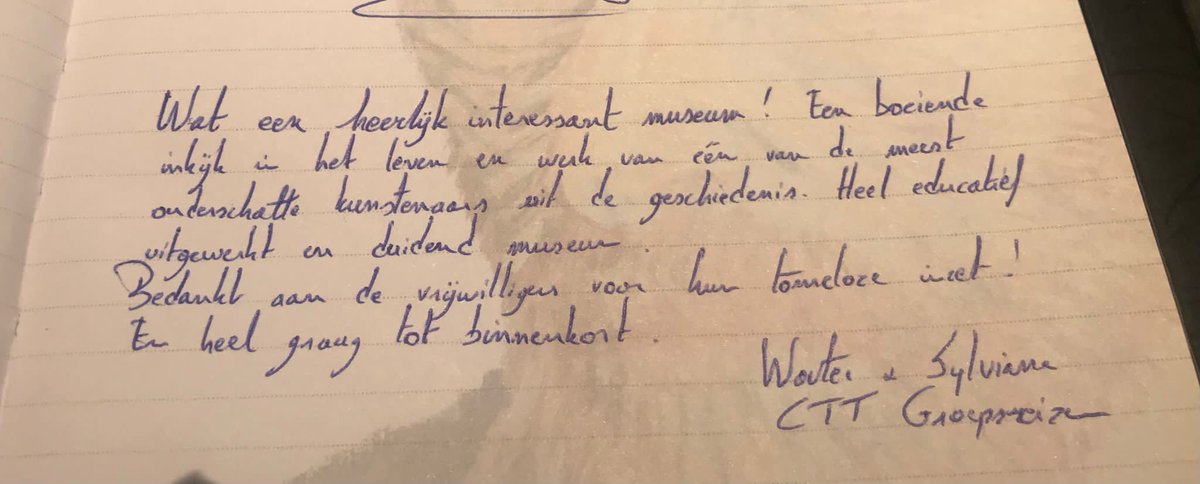 Wat een heerlijk interessant museum! Een boeiende
inkijk in het leven en werk van één van de meest
onderschatte kunstenaars uit de geschiedenis. Heel educatief
uitgewerkt en duidend museum.
Bedankt aan de vrijwilligers voor hun tomeloze inzet!
En heel graag tot binnenkort.
Wouter & Sylviane
CTT Groepsreizen